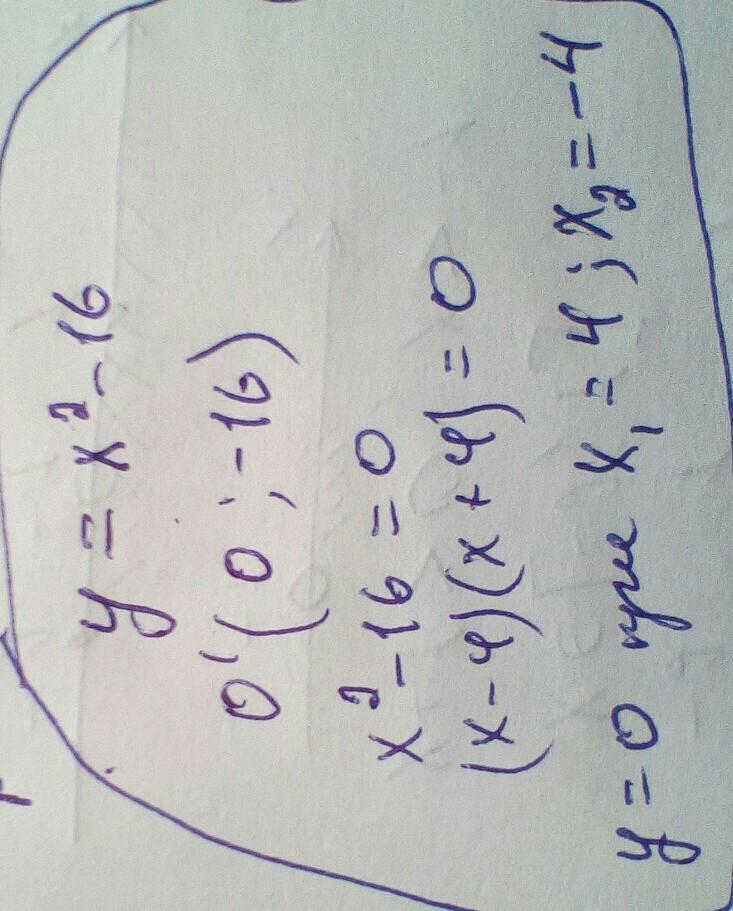 y = x² - 16
0'(0 ; -16)
x² - 16 = 0
(x - 4)(x + 4) = 0
y = 0 при x₁ = 4 ; x₂ = -4